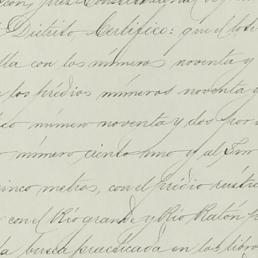 Distrito Certifico: que el lote
lla con los números noventa y
los prédios números noventa
numero noventa y dos por
número ciento uno y al
cinco metros, con el prédio rústi
con el Rio grande y Rio Ratón
busca practicada en los libros